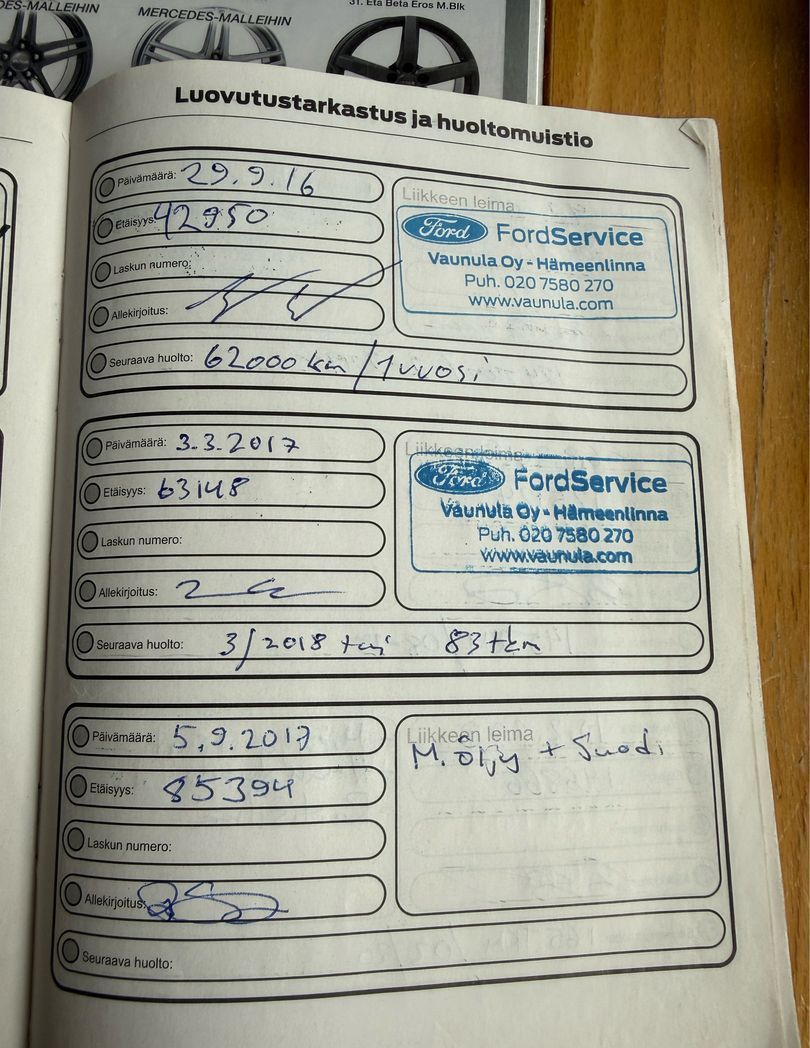 MERCEDES-MALLEIHIN
31. Eta Beta Eros M.Blk
Luovutustarkastus ja huoltomuistio
Päivämäärä: 29.9.16
Etäisyys: 42950
Laskun numero:
Allekirjoitus:
Seuraava huolto: 62000 km / 1 vuosi
Liikkeen leima
Ford FordService
Vaunula Oy - Hämeenlinna
Puh. 020 7580 270
www.vaunula.com
Päivämäärä: 3.3.2017
Etäisyys: 63148
Laskun numero:
Allekirjoitus:
Seuraava huolto: 3/2018 tai 83 tkm
Liikkeen leima
Ford FordService
Vaunula Oy - Hämeenlinna
Puh. 020 7580 270
www.vaunula.com
Päivämäärä: 5.9.2017
Etäisyys: 85394
Laskun numero:
Allekirjoitus:
Seuraava huolto:
Liikkeen leima
M. Öljy + Suodi